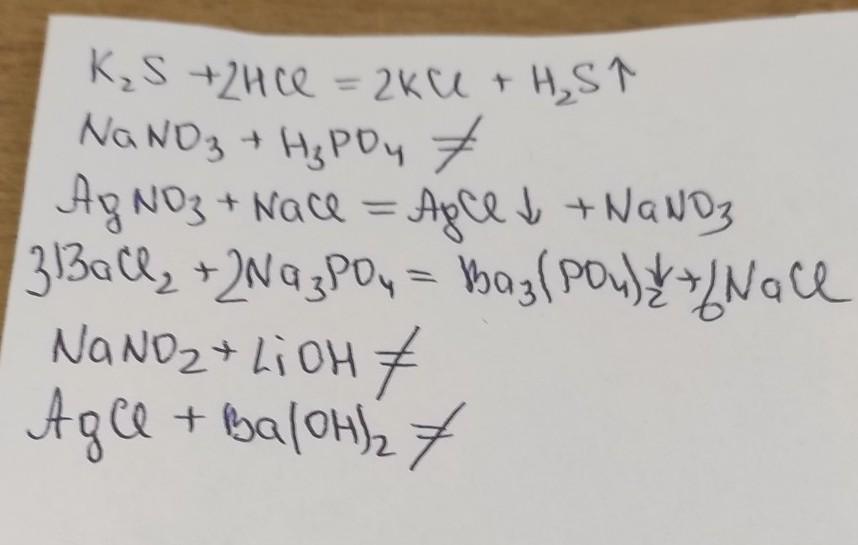 K₂S + 2HCl = 2KCl + H₂S↑
NaNO₃ + H₃PO₄ ≠
AgNO₃ + NaCl = AgCl↓ + NaNO₃
3BaCl₂ + 2Na₃PO₄ = Ba₃(PO₄)₂↓ + 6NaCl
NaNO₂ + LiOH ≠
AgCl + Ba(OH)₂ ≠